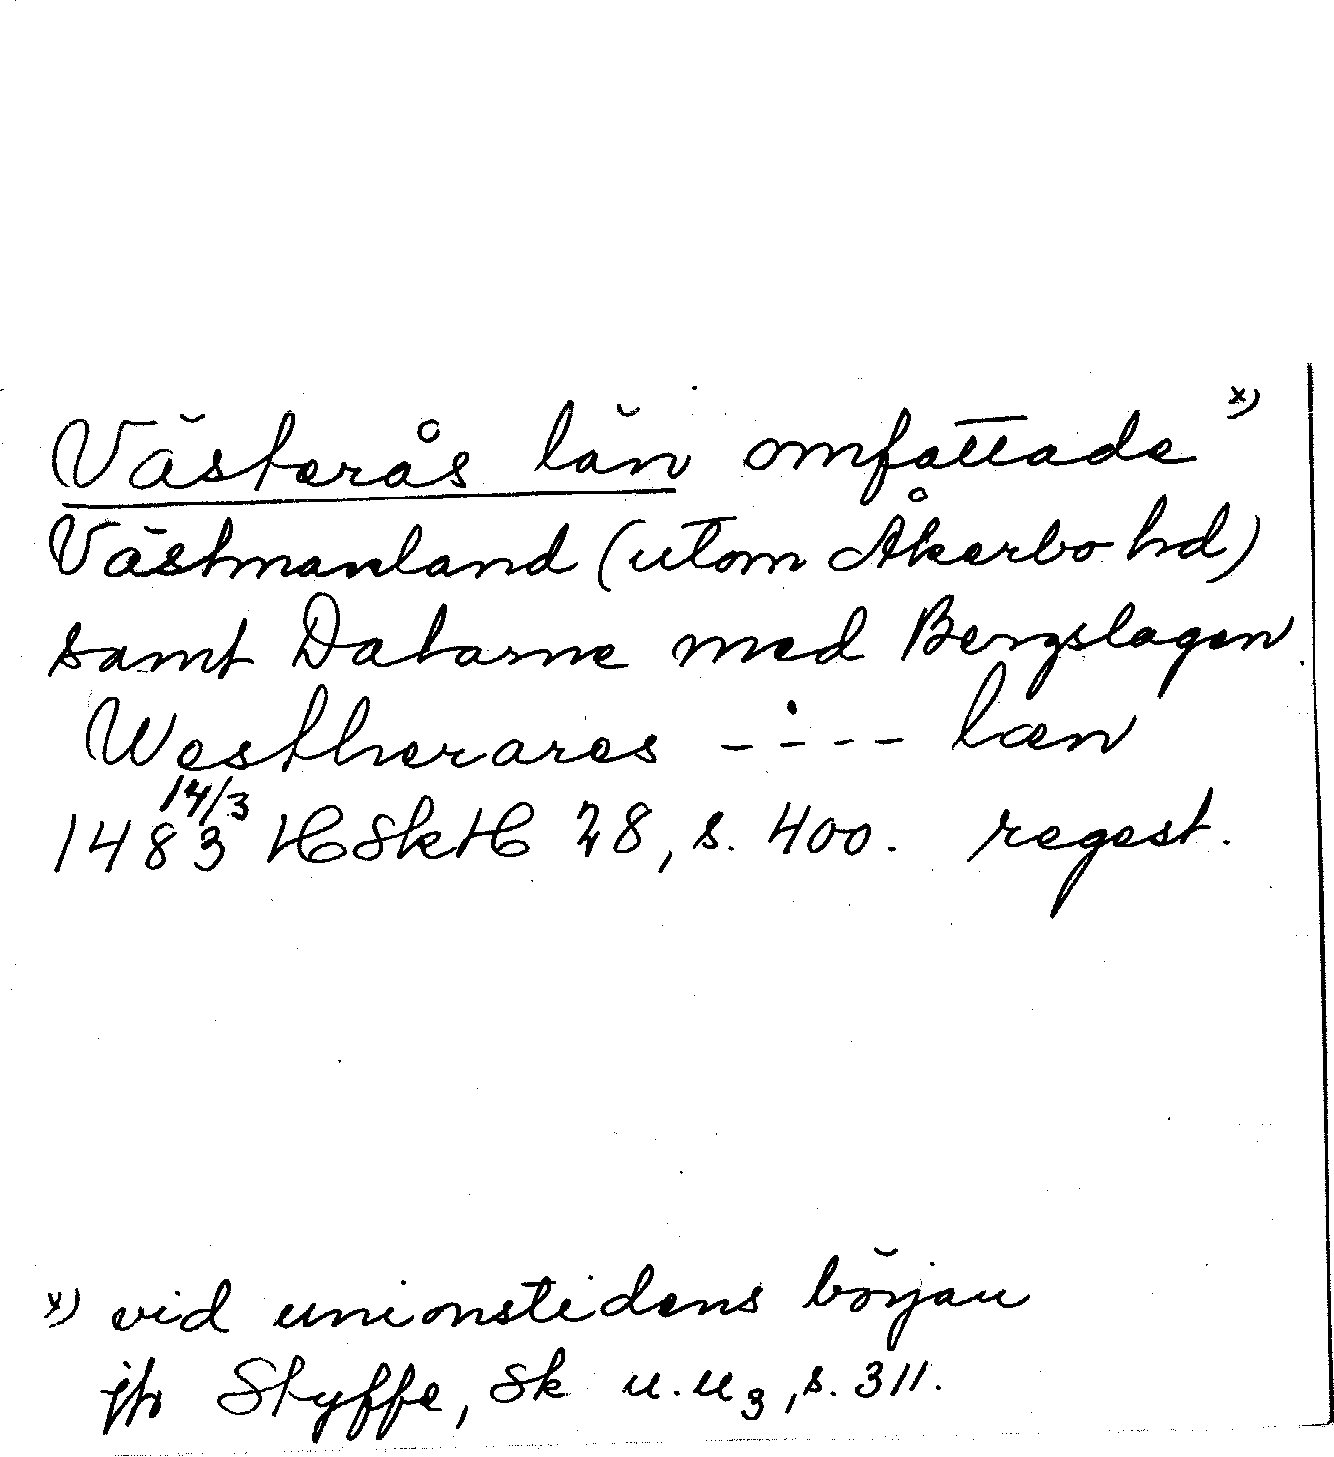 Västerås län omfattade x)
Västmanland (utom Åkerbo hd)
samt Dalarne med Bergslagen.
Westherares ---- læn
14/3
1483 HSkH 28, s. 400. regest.
x) vid unionstidens början
jfr Styffe, Sk u.u3, s. 311.